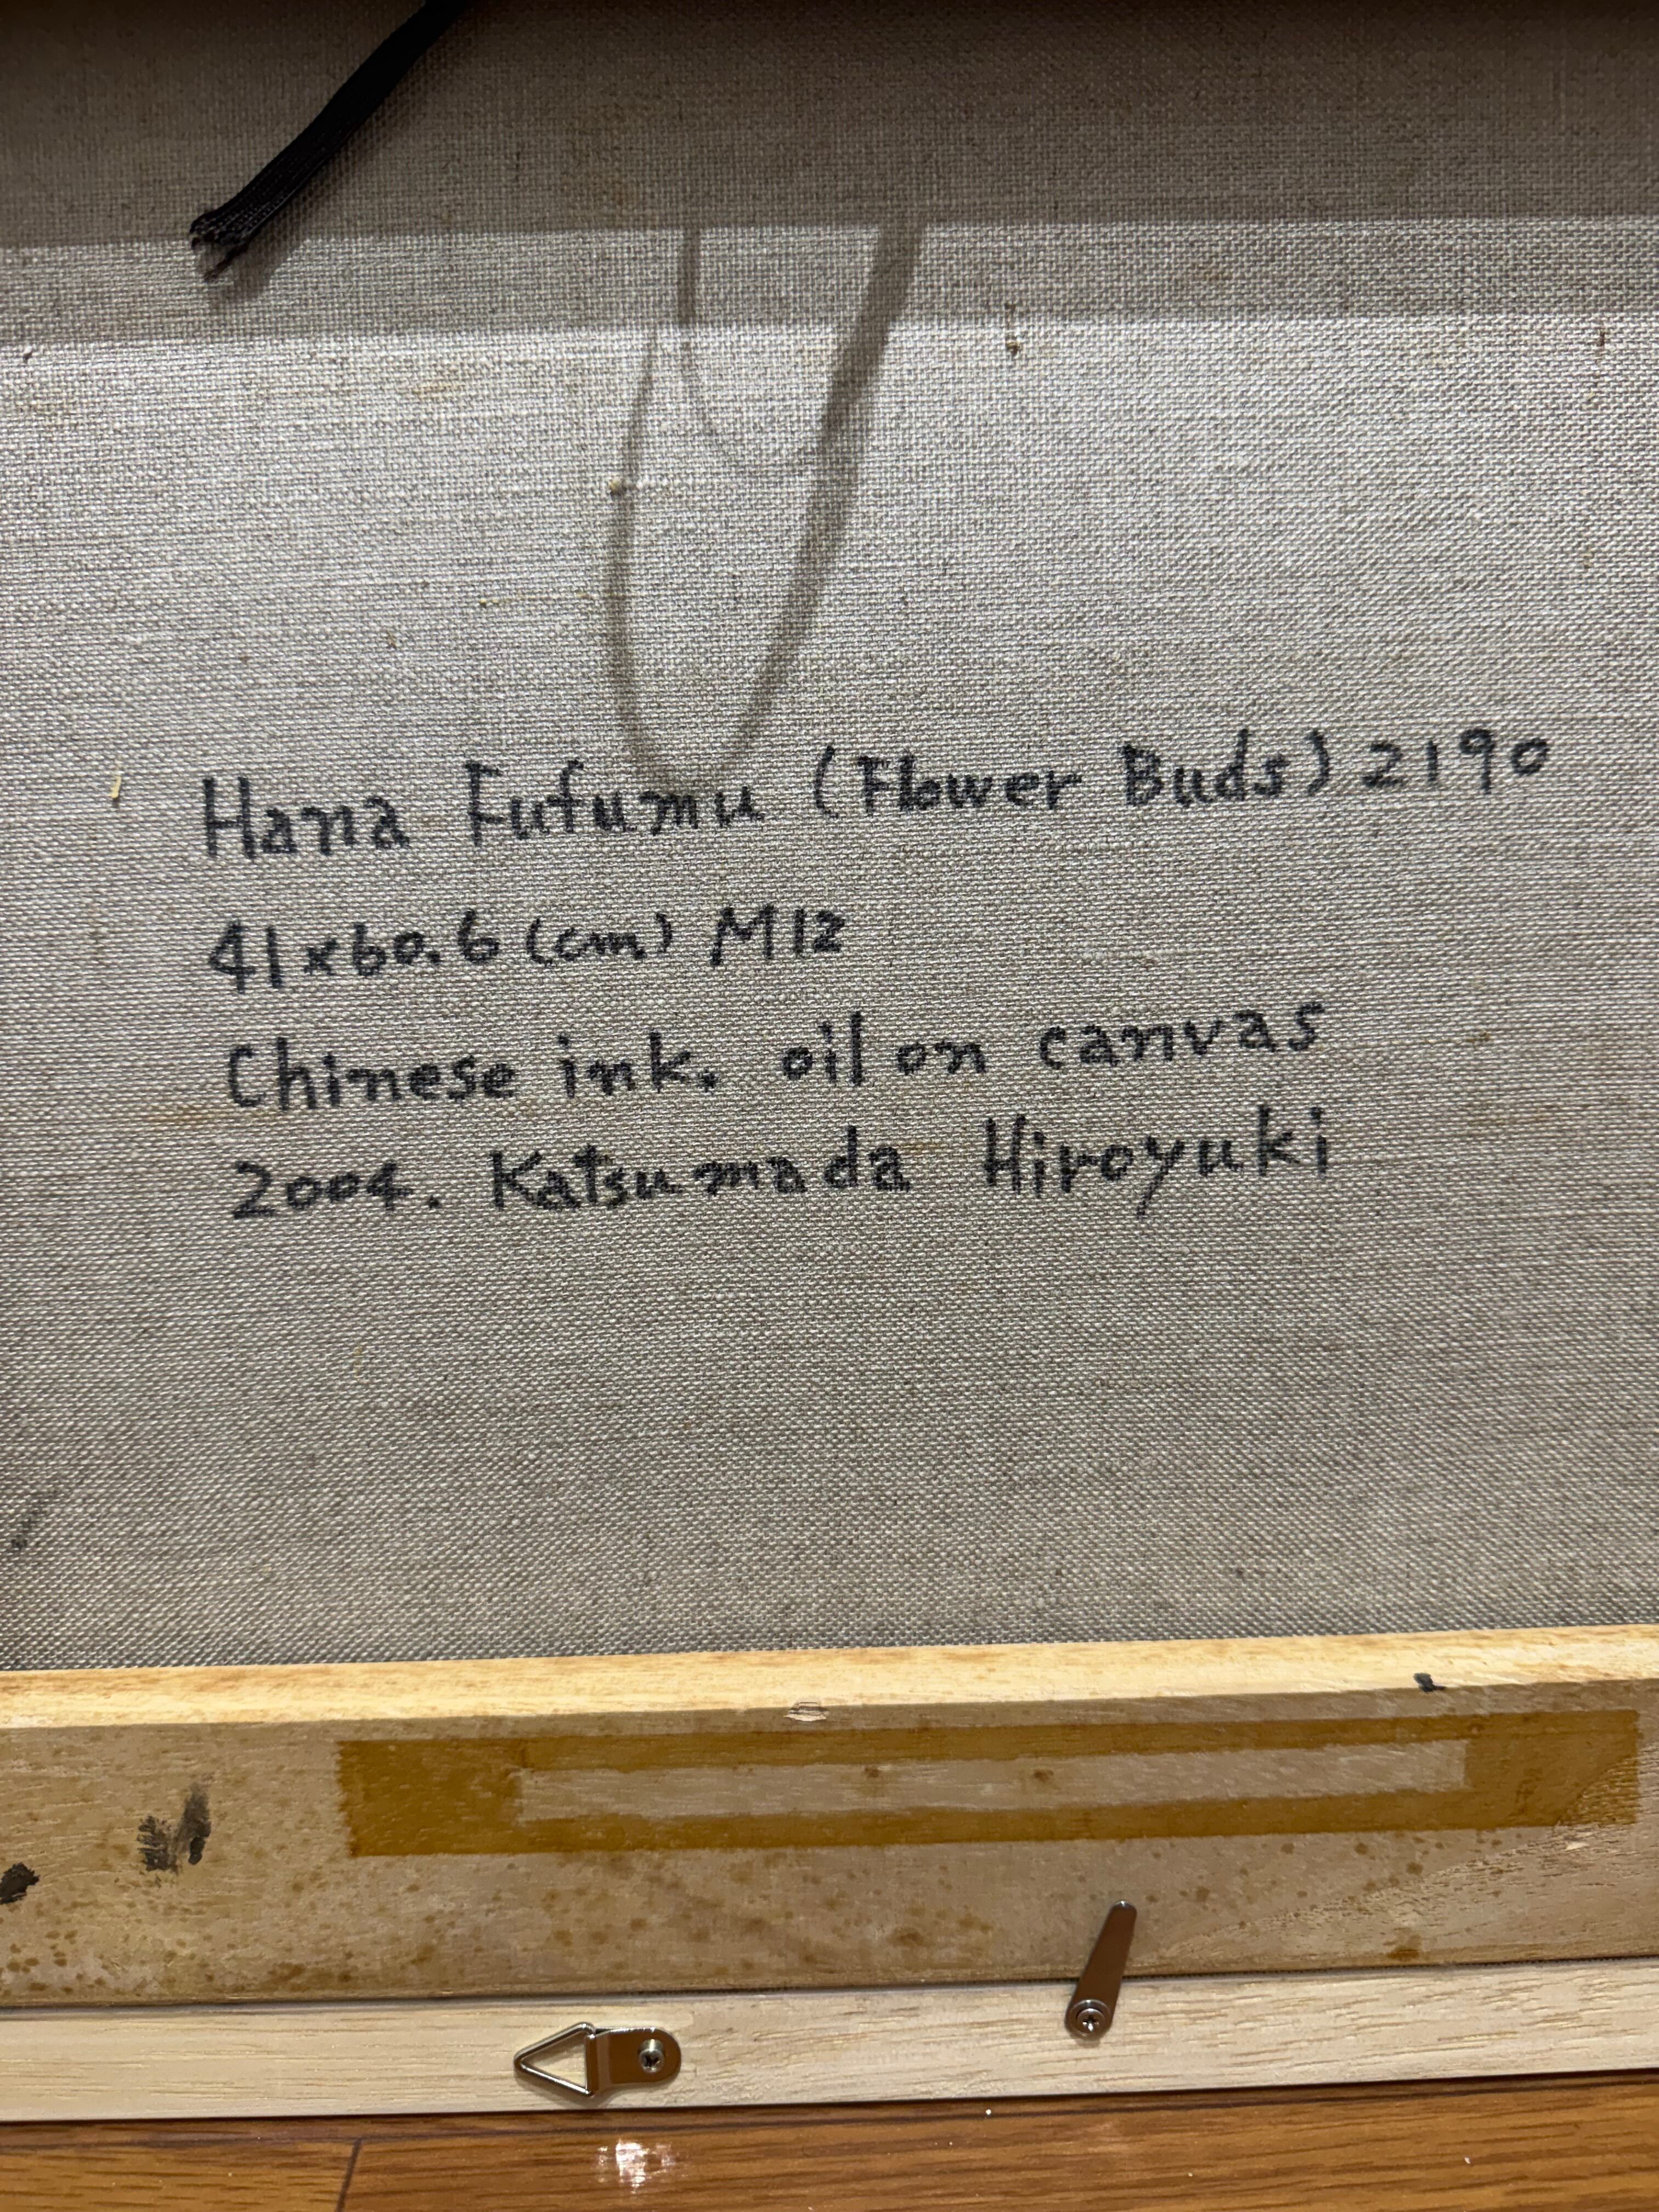 Hana Fufumu (Flower Buds) 2190
41×60.6 (cm) M12
Chinese ink. oil on canvas
2004. Katsumada Hiroyuki